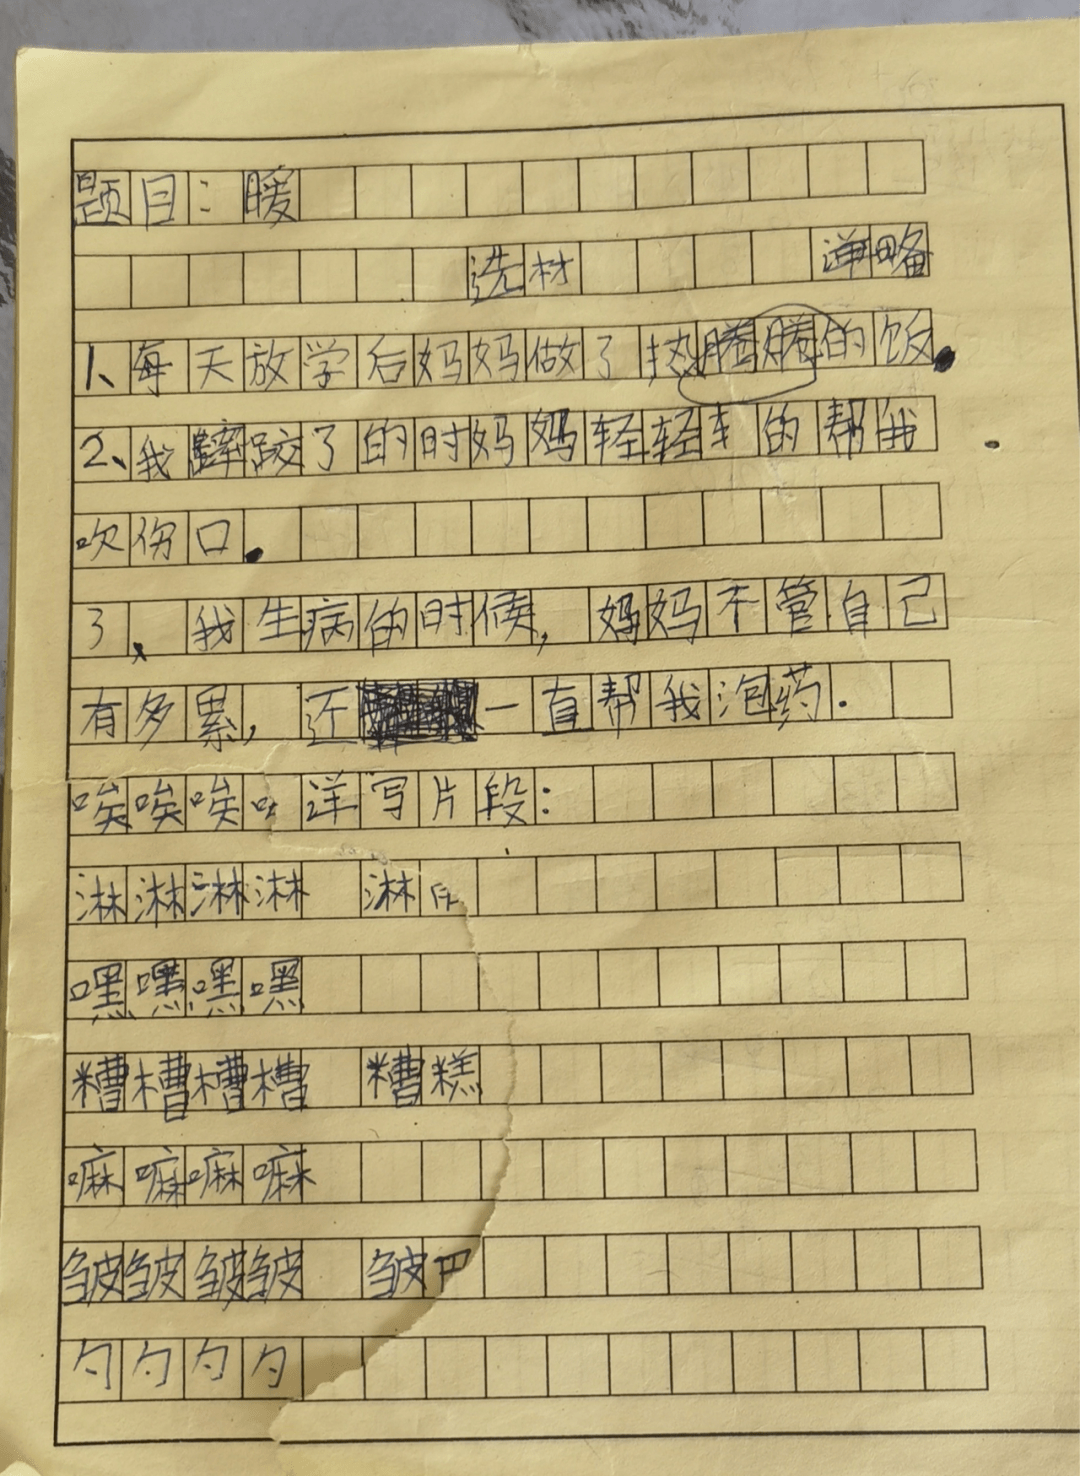 题目：暖
选材 详略
1、每天放学后妈妈做了热腾腾的饭。
2、我蹿跤了的时妈妈轻轻的帮我
吹伤口。
3、我生病的时候，妈妈不管自己
有多累，还一直帮我泡药.
唉唉唉 详写片段：
淋淋淋淋 淋
嘿嘿嘿嘿
糟糟糟糟 糟糕
嘛嘛嘛嘛
皱皱皱皱 皱巴
勺勺勺勺